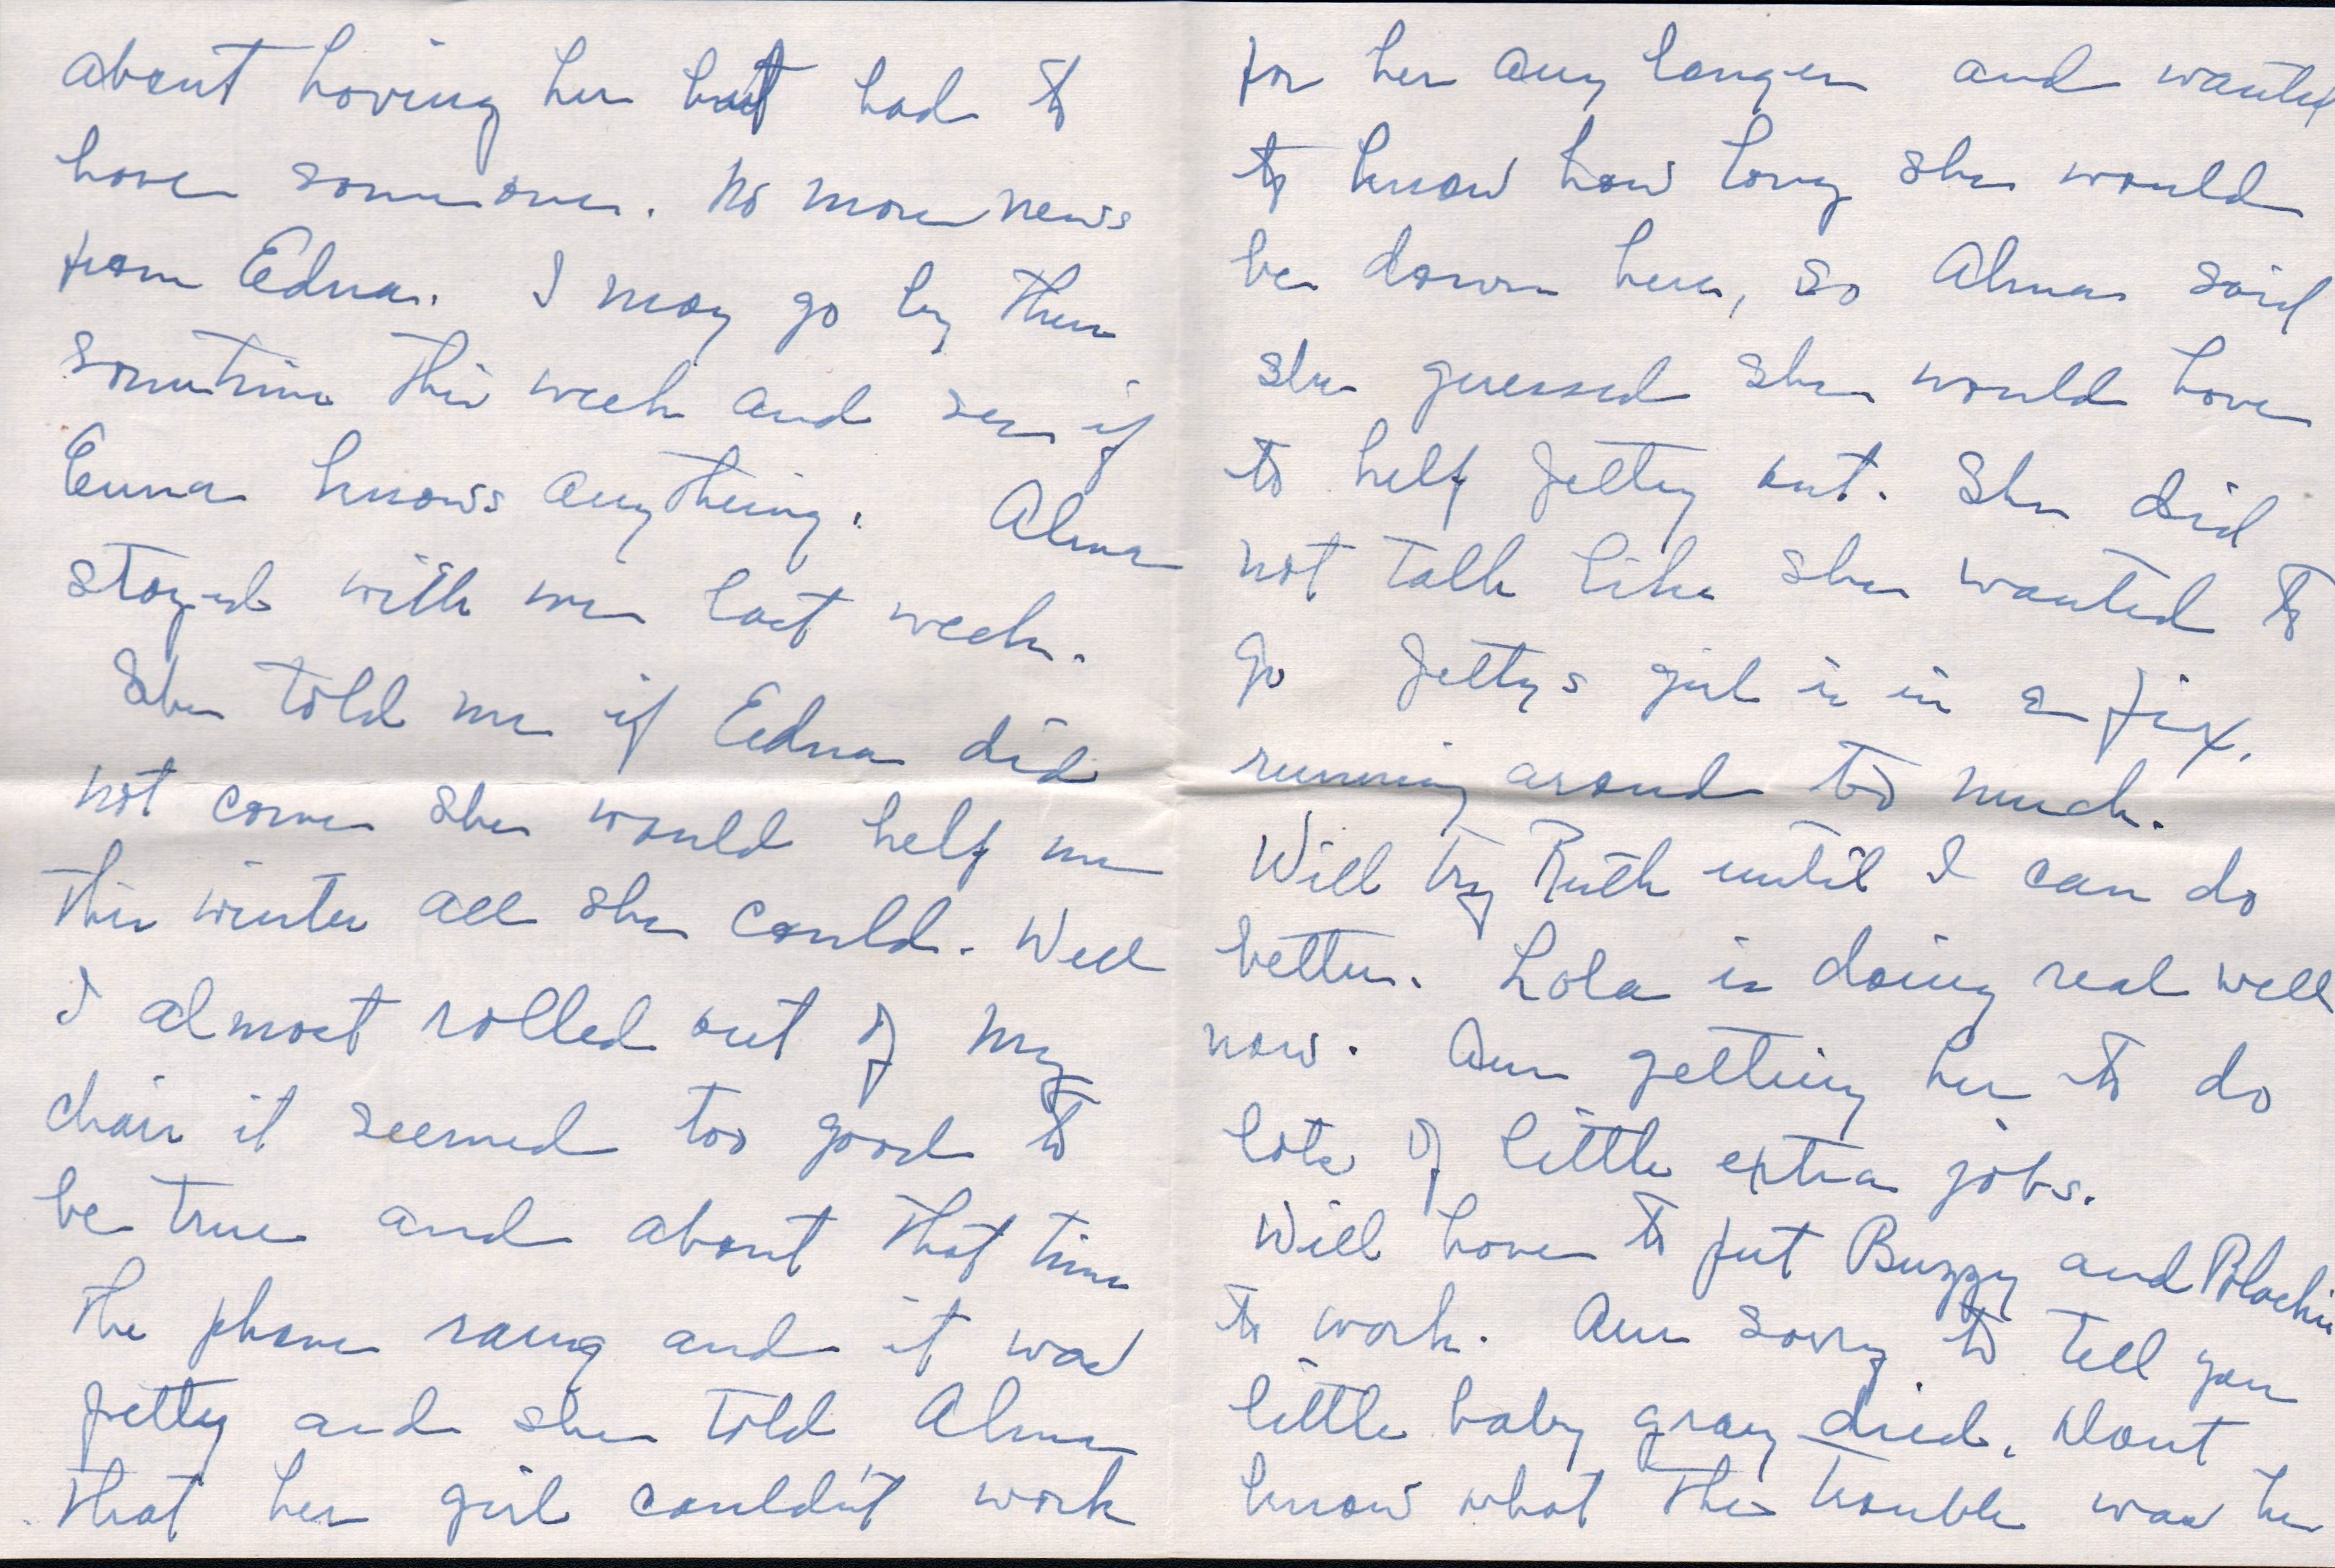 about having her but had to
have someone. No more news
from Edna. I may go by there
sometime this week and see if
Euna knows anything. Alma
stayed with me last week.
She told me if Edna did
not come she would help me
this winter all she could. Well
I almost rolled out of my
chair it seemed too good to
be true and about that time
the phone rang and it was
Jetty and she told Alma
that her girl couldn't work
for her any longer and wanted
to know how long she would
be down here, so Alma said
she guessed she would have
to help Jetty out. She did
not talk like she wanted to
go Jettys girl is in a fix.
running around too much.
Will try Ruth until I can do
better. Lola is doing real well
now. Am getting her to do
lots of little extra jobs.
Will have to put Buzzy and Blackie
to work. Am sorry to tell you
little baby gray died. Dont
know what the trouble was he